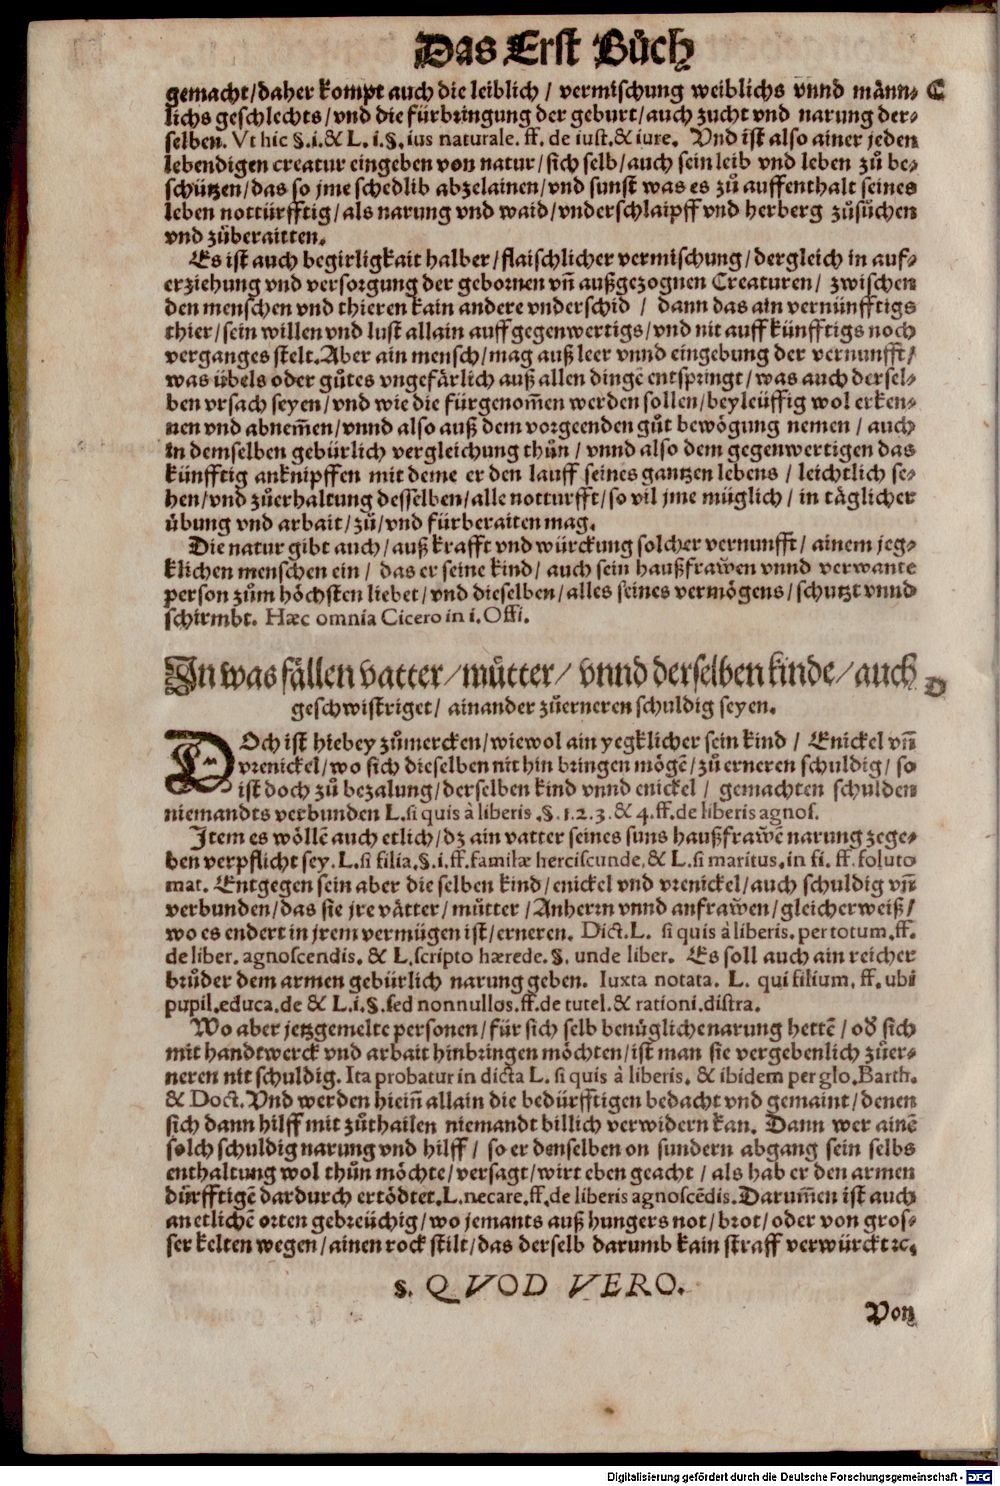 Das Erst Bůch
gemacht/daher kompt auch die leiblich/ vermischung weiblichs vnnd männ⸗ C
lichs geschlechts/vnd die fürbringung der geburt/auch zucht vnd narung der⸗
selben. Vt hic §.i.& L. i.§.ius naturale. ff. de iust.& iure. Vnd ist also ainer jeden
lebendigen creatur eingeben von natur/sich selb/auch sein leib vnd leben zů be⸗
schützen/das so jme schedlib abzelainen/vnd sunst was es zů auffenthalt seines
leben nottürfftig/als narung vnd waid/vnderschlaipff vnd herberg zůsůchen
vnd zůberaitten.
Es ist auch begirligkait halber/flaischlicher vermischung/dergleich in auf⸗
erziehung vnd versorgung der gebornen vñ außgezognen Creaturen/ zwischen
den menschen vnd thieren kain andere vnderschid / dann das ain vernünfftigs
thier/sein willen vnd lust allain auff gegenwertigs/vnd nit auff künfftigs noch
verganges stelt.Aber ain mensch/mag auß leer vnnd eingebung der vernunfft/
was übels oder gůtes vngefärlich auß allen dingē entspringt/was auch dersel⸗
ben vrsach seyen/vnd wie die fürgenom̄en werden sollen/beyleüffig wol erken⸗
nen vnd abnem̄en/vnnd also auß dem vorgeenden gůt bewögung nemen/ auch
in demselben gebürlich vergleichung thůn/ vnnd also dem gegenwertigen das
künfftig anknipffen mit deme er den lauff seines gantzen lebens/ leichtlich se⸗
hen/vnd zůerhaltung desselben/alle notturfft/so vil jme müglich/ in täglicher
übung vnd arbait/zů/vnd fürberaiten mag.
Die natur gibt auch/auß krafft vnd würckung solcher vernunfft/ ainem jeg⸗
klichen menschen ein/ das er seine kind/ auch sein haußfrawen vnnd verwante
person zům höchsten liebet/vnd dieselben/alles seines vermögens/schutzt vnnd
schirmbt. Hæc omnia Cicero in i. Offi.
In was fällen vatter/můtter/ vnnd derselben kinde/auch D
geschwistriget/ ainander zůerneren schuldig seyen.
DOch ist hiebey zůmercken/wiewol ain yegklicher sein kind/ Enickel vñ
vrenickel/wo sich dieselben nit hin bringen mögē/zů erneren schuldig/ so
ist doch zů bezalung/derselben kind vnnd enickel/ gemachten schulden
niemandts verbunden L.si quis à liberis .§.1.2.3. & 4.ff.de liberis agnos.
Item es wöllē auch etlich/dz ain vatter seines suns haußfraw̄e narung zege⸗
ben verpflicht sey.L.si filia.§.i.ff.familæ herciscunde.& L.si maritus.in fi. ff. soluto
mat. Entgegen sein aber die selben kind/enickel vnd vrenickel/auch schuldig vñ
verbunden/das sie jre vätter/ můtter/Anherrn vnnd anfraw̄en/gleicherweiß/
wo es endert in jrem vermügen ist/erneren. Dict.L. si quis à liberis. per totum.ff.
de liber. agnoscendis. & L.scripto hærede. §. unde liber. Es soll auch ain reicher
brůder dem armen gebürlich narung geben. Iuxta notata. L. qui filium. ff. ubi
pupil.educa.de & L.i.§.sed nonnullos.ff.de tutel.& rationi.distra.
Wo aber jetzgemelte personen/für sich selb benůgliche narung hettē/ od̄ sich
mit handtwerck vnd arbait hinbringen möchten/ist man sie vergebenlich zůer⸗
neren nit schuldig. Ita probatur in dicta L. si quis à liberis. & ibidem per glo.Barth.
& Doct.Vnd werden hiein̄ allain die bedürfftigen bedacht vnd gemaint/denen
sich dann hilff mit zůthailen niemandt billich verwidern kan. Dann wer ainē
solch schuldig narung vnd hilff/ so er denselben on sundern abgang sein selbs
enthaltung wol thůn möchte/versagt/wirt eben geacht/als hab er den armen
dürfftigē dardurch ertödtet.L.necare.ff.de liberis agnoscēdis.Darum̄en ist auch
an etlichē orten gebreüchig/wo jemants auß hungers not/brot/oder von gros⸗
ser kelten wegen/ainen rock stilt/das derselb darumb kain straff verwürckt ꝛc.
§. QVOD VERO.
Von
Digitalisierung gefördert durch die Deutsche Forschungsgemeinschaft - DFG